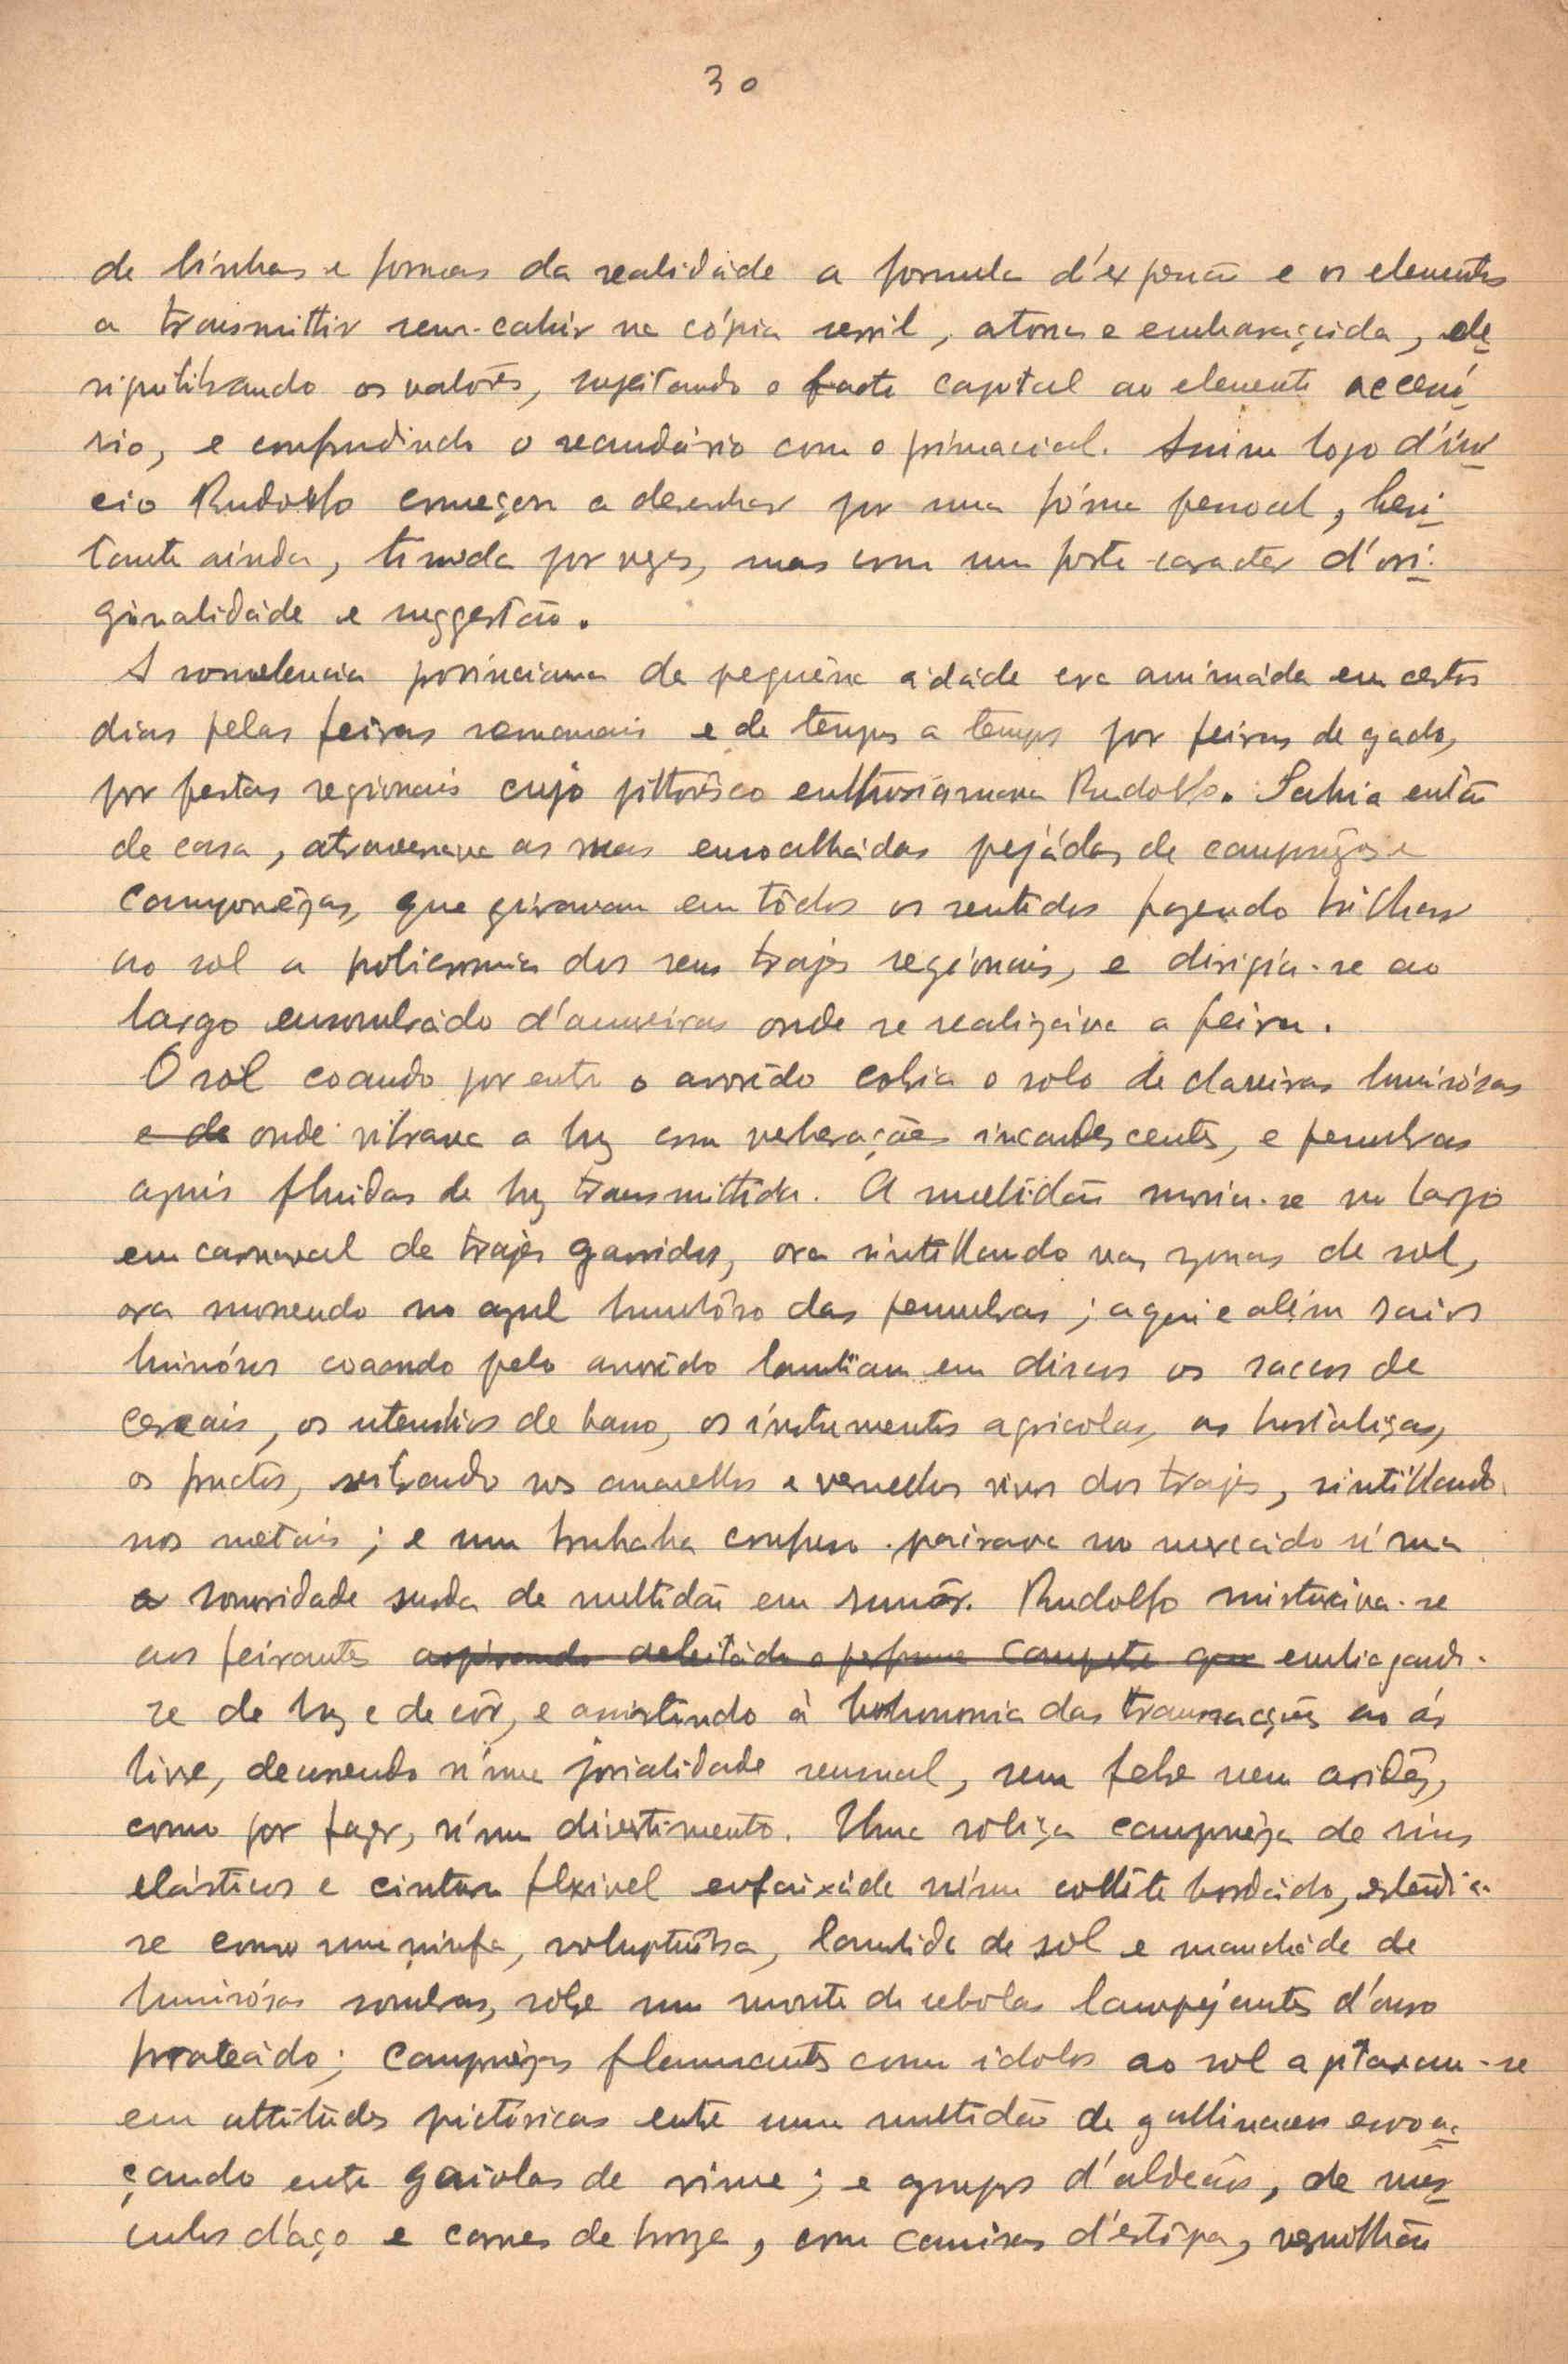 30
de linhas e formas da realidade a formula d'expressão e os elementos
a transmittir sem cahir na cópia servil, atona e embaraçada, de
siquilibrando os valôres, sujeitando o facto capital ao elemento accesó
rio, e confundindo o secundário com o primacial. Assim logo d'iní
cio Rudolfo começou a desenhar por uma fórma pessoal, hesi
tante ainda, timida por vezes, mas com um forte caracter d'ori
ginalidáde e suggestão.
A somnolencia provinciana da pequêna cidáde era animáda em certos
dias pelas feiras semanais e de tempos a tempos por feiras de gado,
por festas regionais cujo pittorêsco enthusiasmava Rudolfo. Sahia então
de casa, atravessava as ruas ensoalhádas pejádas de camponêzes e
camponêzas, que giravam em tôdos os sentidos fazendo brilhar
ao sol a policromia dos seus trajes regionais, e dirigia-se ao
largo ensombrádo d'amoreiras onde se realizáva a feira.
O sol coando por entre o arvorêdo cobria o solo de clareiras luminósas
e de onde vibrava a luz com reverberações incandescentes, e penumbras
azuis fluidas de luz transmittida. A multidão movia-se no largo
em carnaval de trajes garridos, ora sintillando nas zonas de sol,
ora morrendo no azul luminôso das penumbras; aqui e além raios
luminósos coando pelo arvorêdo lambiam em discos os saccos de
cereais, os utensilios de barro, os instrumentos agricolas, as hortaliças,
os fructos, vibrando nos amarellos e vermelhos vivos dos trajes, sintillando
nos metais; e um bruhaha confuso pairava no mercádo n'uma
a sonoridade surda de multidão em rumôr. Rudolfo misturáva-se
aos feirantes aspirando deleitádo o perfume campestre que embriagando-
se de luz e de côr, e assistindo á bonhomia das transacções ao ár
livre, decorrendo n'uma jovialidade sensual, sem febre nem aridêz,
como por fazer, n'um divertimento. Uma roliça camponêza de seios
elásticos e cintura flexivel enfaixáda n'um collête bordádo, estendia-
se como uma ninfa, voluptuôsa, lambida de sol e mancháda de
luminósas sombras, sobre um monte de cebolas lampejantes d'ouro
prateádo; camponêzas flammantes como idolos ao sol apitavam-se
em attitudes pictóricas entre uma multidão de gallinaceos esvoa
çando entre gaiolas de vime; e grupos d'aldeãos, de mus
culos d'aço e carnes de bronze, com camisas d'estôpa, vermilhão